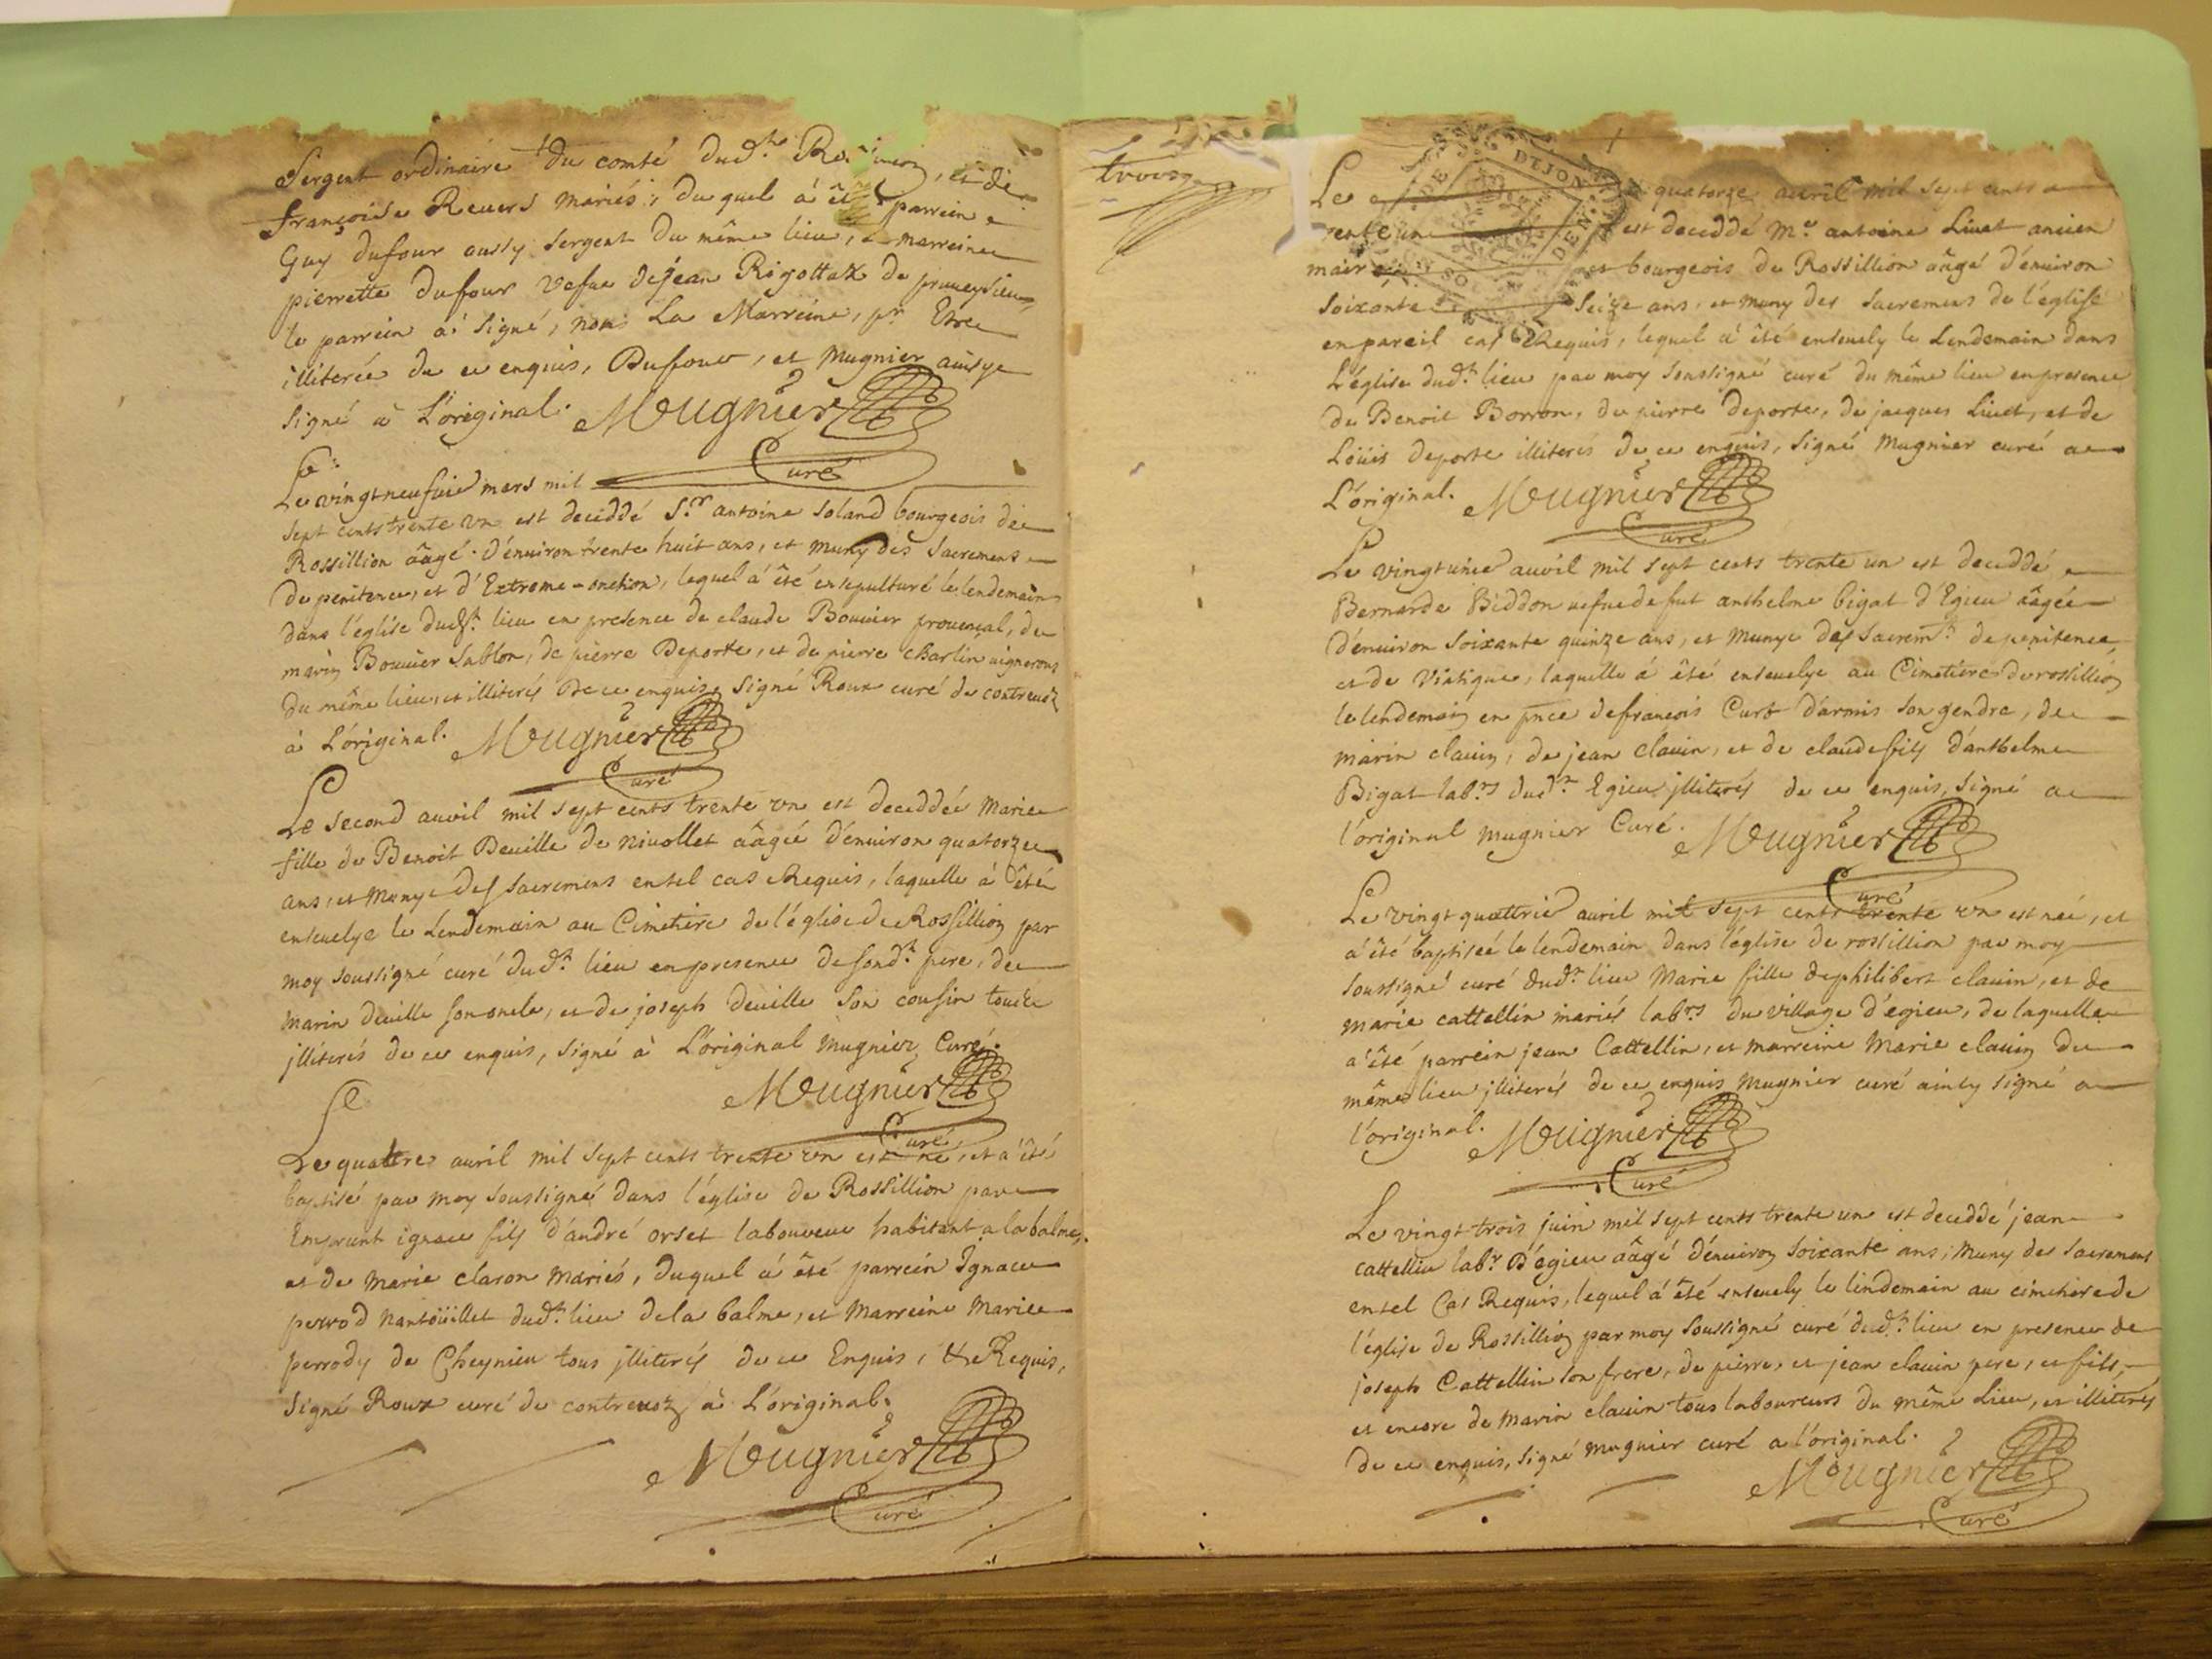 Sergent ordinaire du comté dud.t et de
françoise Reuers mariés; du quel à êté parrein
Guy dufour aussy sergent du même lieu, marreine
pierrette dufour vefue de jean Rigottaz de prumeysieu,
le parrein à signé, non La Marreine, pr Etre
illiterée de ce enquis, Dufour, et Mugnier ainsy
signé à L'original. Mugnier
Curé
Le vingtneufuie mars mil
sept cents trente vn est decéddé S.r antoine soland bourgeois de
Rossillion âagé d'enuiron trente huit ans, et muny des sacremens
de penitence, et d'Extreme-onction, lequel à êté ensepulturé le lendemain
dans l'église dud.t lieu en presence de claude Bouuier prouencal, de
marin Bouuier sablon, de pierre Deporte, et de pierre charlin uignerons
du même lieu, et illiterés de ce enquis, signé Roux curé de contreuoz
à L'original. Mugnier
Curé
Le second auril mil sept cents trente vn est deceddée Marie
fille de Benoit Deuille de niuollet âagée d'enuiron quatorze
ans, et munye des sacremens en tel cas Requis, laquelle à êté
enseuelye le Lendemain au Cimetiere de l'église de Rossillion par
moy soussigné curé dud.t lieu en presence de sond.t pere, de
Marin deuille son oncle, et de joseph deuille son cousin touts
jlliterés de ce enquis, signé à L'original Mugnier Curé.
Mugnier
Curé
Le quattre auril mil sept cents trente vn est né, et à êté
baptisé par moy soussigné dans l'église de Rossillion par
Emprunt ignace fils d'andré orset laboureur habitant a la balme,
et de Marie claron mariés, duquel à été parrein Ignace
perrod nantoüillet dud.t lieu de la balme, et Marreine Marie
perrody de Cheynieu tous jlliterés de ce Enquis, & Requis,
signé Roux curé de contreuoz à L'original.
Mugnier
Curé
trois
Le quatorze auril mil sept cents
trente un est deceddé M.e antoine Liuet ancien
maire et bourgeois de Rossillion âagé d'enuiron
soixante seize ans, et muny des sacremens de l'église
en pareil cas Requis, lequel à été enseuely le Lendemain dans
L'église dud.t lieu par moy soussigné curé du même lieu en presence
de Benoit Borron, de pierre deporte, de jacques Liuet, et de
Loüis deporte illiterés de ce enquis, signé Mugnier curé a
L'original. Mugnier
Curé
Le vingtunie auril mil sept cents trente un est deceddé
Bernarde Biddon uefue de fut anthelme bigat d'Egieu âagée
d'enuiron soixante quinze ans, et munye des sacrem.ts de penitence,
et de Viatique, laquelle à été enseuelye au Cimetiere de rossillion
le lendemain en pnce de francois Curt d'armis son gendre, de
marin clauin, de jean clauin, et de claude fils d'anthelme
Bigat lab.rs dud.t Egieu jlliterés de ce enquis, signé a
l'original mugnier Curé. Mugnier
Curé
Le vingt quattrie auril mil sept cents trente vn est née, et
à été baptisée le lendemain dans l'église de rossillion par moy
soussigné curé dud.t lieu Marie fille de philibert clauin, et de
marie cattellin mariés lab.rs du village d'égieu, de laquelle
a'été parrein jean Cattellin, et marreine Marie clauin du
même lieu jlliterés de ce enquis Mugnier curé ainsy signé a
l'original. Mugnier
Curé
Le vingt trois juin mil sept cents trente un est deceddé jean
cattellin lab.r d'égieu âagé d'enuiron soixante ans, muny des sacremens
en tel Cas Requis, lequel à été enseuely le lendemain au cimetiere de
l'église de Rossillion par moy soussigné curé dud.t lieu en presence de
joseph Cattellin son frere, de pierre, et jean clauin pere, et fils,
et encore de Marin clauin tous laboureurs du même Lieu, et illiterés
de ce enquis, signé mugnier curé a l'original.
Mugnier
Curé